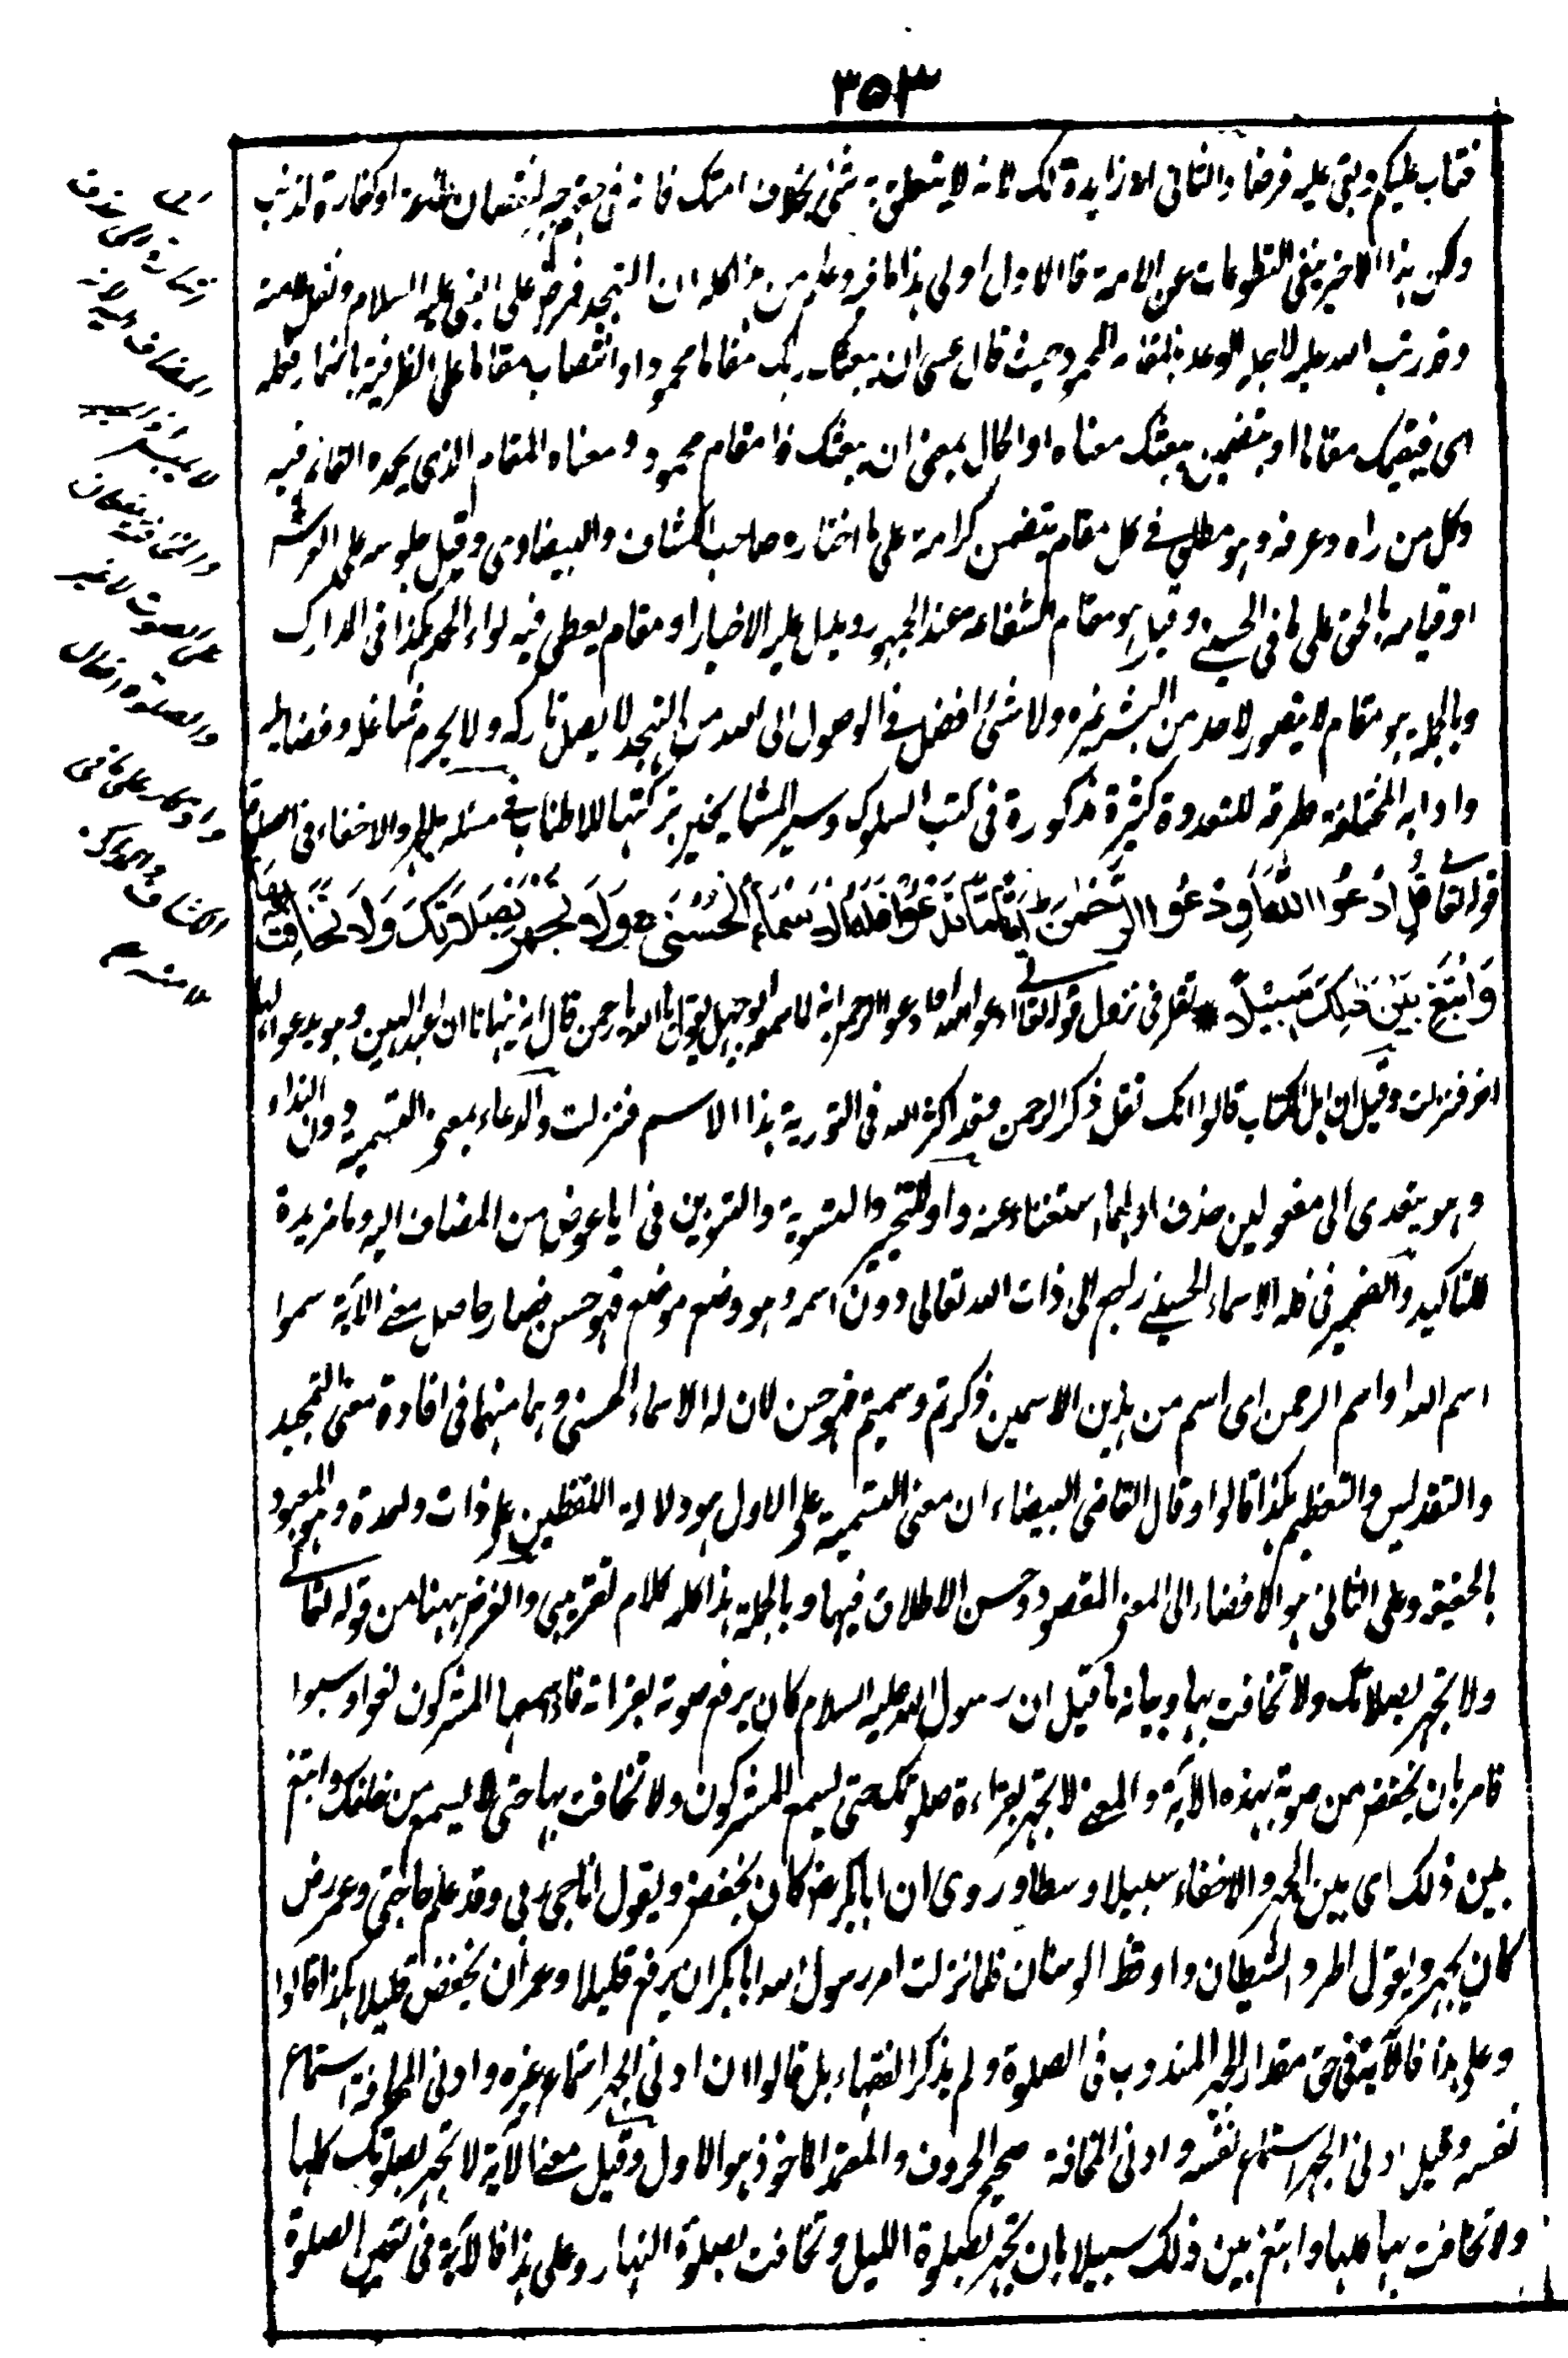 ٣٥٣
فتاب عليكم وبقى عليه فرضا والثانى انه زايدة لك لانه لا يتعلق به شئ بخلاف امتك فانه فى حقهم جبر لنقصان او كفارة لذنب
ولكن هذا الاخير ينفى التطوعات عن الامة فالاول اولى هذا ما فيه وعلم من هذا كله ان التهجد فرض على النبى عليه السلام ونفل لامته
وقد رتب الله عليه لاجله الوعد بالمقام المحمود حيث قال عسى ان يبعثك ربك مقاما محمودا وانتصاب مقاما على الظرفية باضمار فعله
اى فيقيمك مقاما او بتضمين يبعثك معناه او الحال بمعنى ان يبعثك ذا مقام محمود ومعناه المقام الذى يحمده القائم فيه
وكل من راه وعرفه وهو مطلق فى كل مقام يتضمن كرامة على ما اختاره صاحب الكشاف والبيضاوى وقيل جلوسه على العرش
او قيامه بالحق على ما فى الحسينى وقيل هو مقام الشفاعة عند الجمهور ويدل عليه الاخبار او مقام يعطى فيه لواء الحمد هكذا فى المدارك
وبالجملة هو مقام لا يتصور لاحد من البشر غيره ولا شئ افضل فى الوصول الى الله من التهجد لا يصل تاركه ولا يحرم شاغله وفضايله
وادابه المختلفة طرقه المتعددة كثيرة مذكورة فى كتب السلوك وسير المشايخ تركتها للاطناب فى مسئلة الجهر والاخفاء فى الصلوة
قوله تعالى قُلِ ادْعُوا اللّٰهَ اَوِ ادْعُوا الرَّحْمٰنَ اَيًّا مَّا تَدْعُوْا فَلَهُ الْاَسْمَاءُ الْحُسْنٰى وَلَا تَجْهَرْ بِصَلَاتِكَ وَلَا تُخَافِتْ بِهَا
وَابْتَغِ بَيْنَ ذٰلِكَ سَبِيْلًا نقل فى نزول قوله تعالى ادعوا الله او ادعوا الرحمن انه لما سمعه ابو جهل يقول يا الله يا رحمن قال انه ينهانا ان نعبد الهين وهو يدعو الها
اخر فنزلت وقيل ان اهل الكتاب قالوا انك لتقل ذكر الرحمن وقد اكثر الله فى التورية هذا الاسم فنزلت والدعاء بمعنى التسمية دون النداء
وهو يتعدى الى مفعولين حذف اولهما استغناء عنه واو للتخيير والتسوية والتنوين فى ايا عوض من المضاف اليه وما مزيدة
للتاكيد والضمير فى فله الاسماء الحسنى راجع الى ذات الله تعالى دون اسمه وهو وضع موضع فهو حسن فصار حاصل معنى الآية سموا
اسم الله او اسم الرحمن اى اسم من هذين الاسمين ذكرتم وسميتم فهو حسن لان له الاسماء الحسنى وهما منها فى افادة معنى التمجيد
والتقديس والتعظيم هكذا قالوا وقال القاضى البيضاء ان معنى التسمية على الاول هو دلالة اللفظين على ذات واحدة وهو المعبود
بالحقيقة وعلى الثانى هو الافضاء الى المعنى المقصود وحسن الاطلاق فيها وبالجملة هذا كله كلام تقريبى والغرض ههنا من قوله تعالى
ولا تجهر بصلاتك ولا تخافت بها وبيانه ما قيل ان رسول الله عليه السلام كان يرفع صوته بقراته فاذا سمعها المشركون لغوا وسبوا
فامر بان يخفض من صوته بهذه الآية والمعنى لا تجهر بقراءة صلوتك حتى يسمع المشركون ولا تخافت بها حتى لا يسمع من خلفك وابتغ
بين ذلك اى بين الجهر والاخفاء سبيلا وسطا وروى ان ابا بكر رض كان يخفض ويقول اناجى ربى وقد علم حاجتى وعمر رض
كان يجهر ويقول اطرد الشيطان واوقظ الوسنان فلما نزلت امر رسول الله ابا بكر ان يرفع قليلا وعمر ان يخفض قليلا هكذا قالوا
وعلى هذا فالآية فى حق مقدار الجهر المندوب فى الصلوة ولم يذكر الفقهاء بل قالوا ان ادنى الجهر استماع غيره وادنى المخافتة استماع
نفسه وقيل ادنى الجهر استماع نفسه وادنى المخافتة صحيح الحروف والمعتمد الماخوذ هو الاول وقيل معنى الآية لا تجهر بصلوتك كلها
ولا تخافت بها كلها وابتغ بين ذلك سبيلا بان تجهر بصلوة الليل وتخافت بصلوة النهار وعلى هذا فالآية فى تعيين الصلوة
اشارة الى حذف
المضاف اليه لانه
على الصوت لا غير
والصلوة افعال
واذكار على ما فى
الكشاف والمدارك